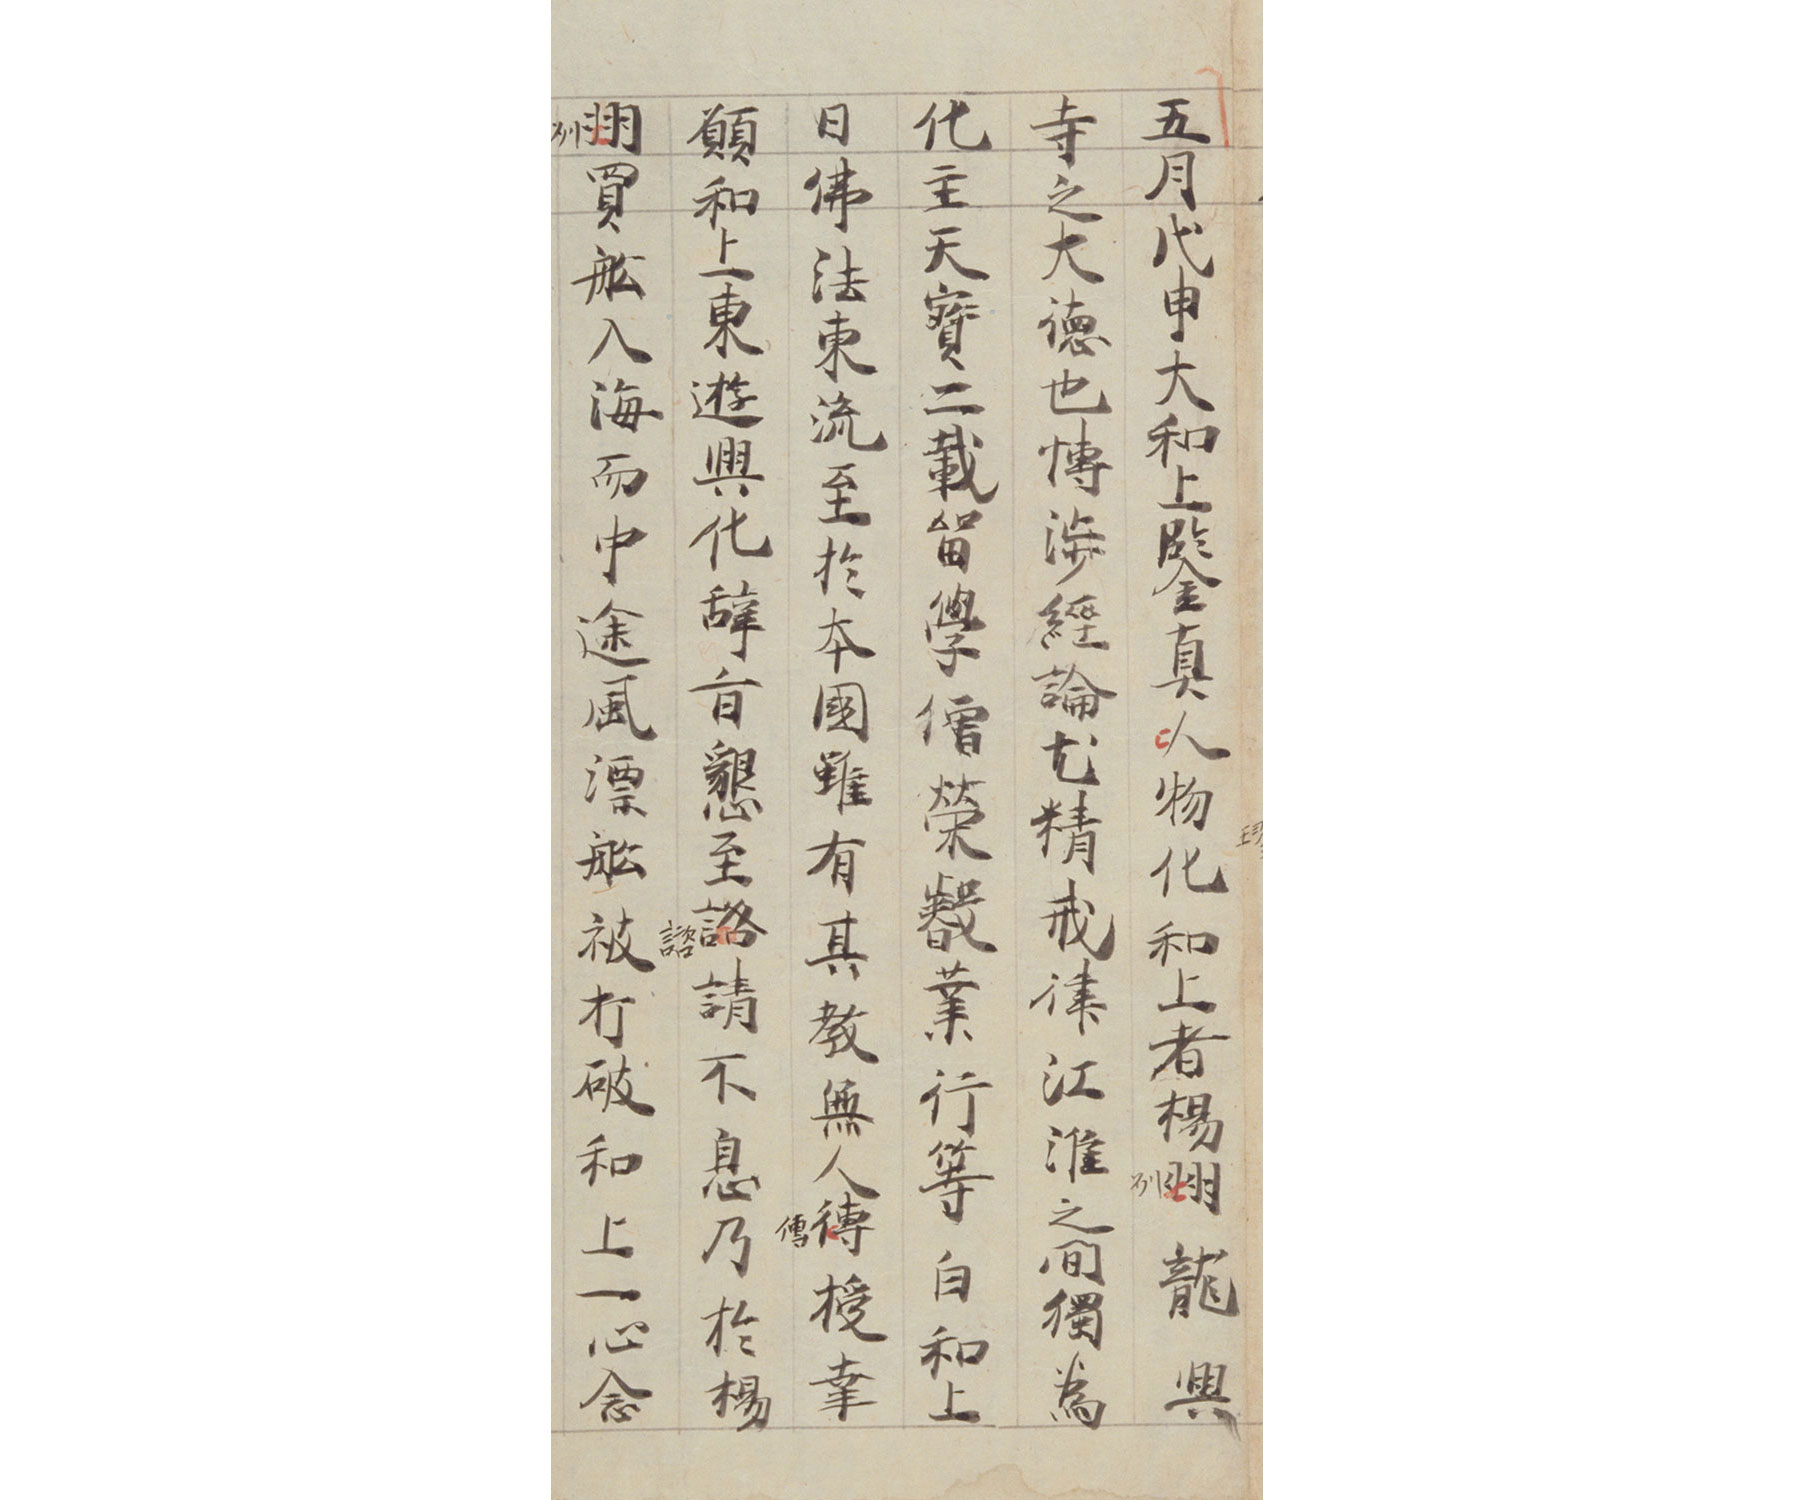 五月戊申大和上鑒真人物化和上者楊州龍興
寺之大德也博渉經論尤精戒律江淮之間獨為
化主天寶二載留學僧榮叡業行等白和上
日佛法東流至於本國雖有其教無人傳授幸
傳
願和上東遊興化辞旨懇至諮請不息乃於楊
諮
州買舩入海而中途風漂舩被打破和上一心念